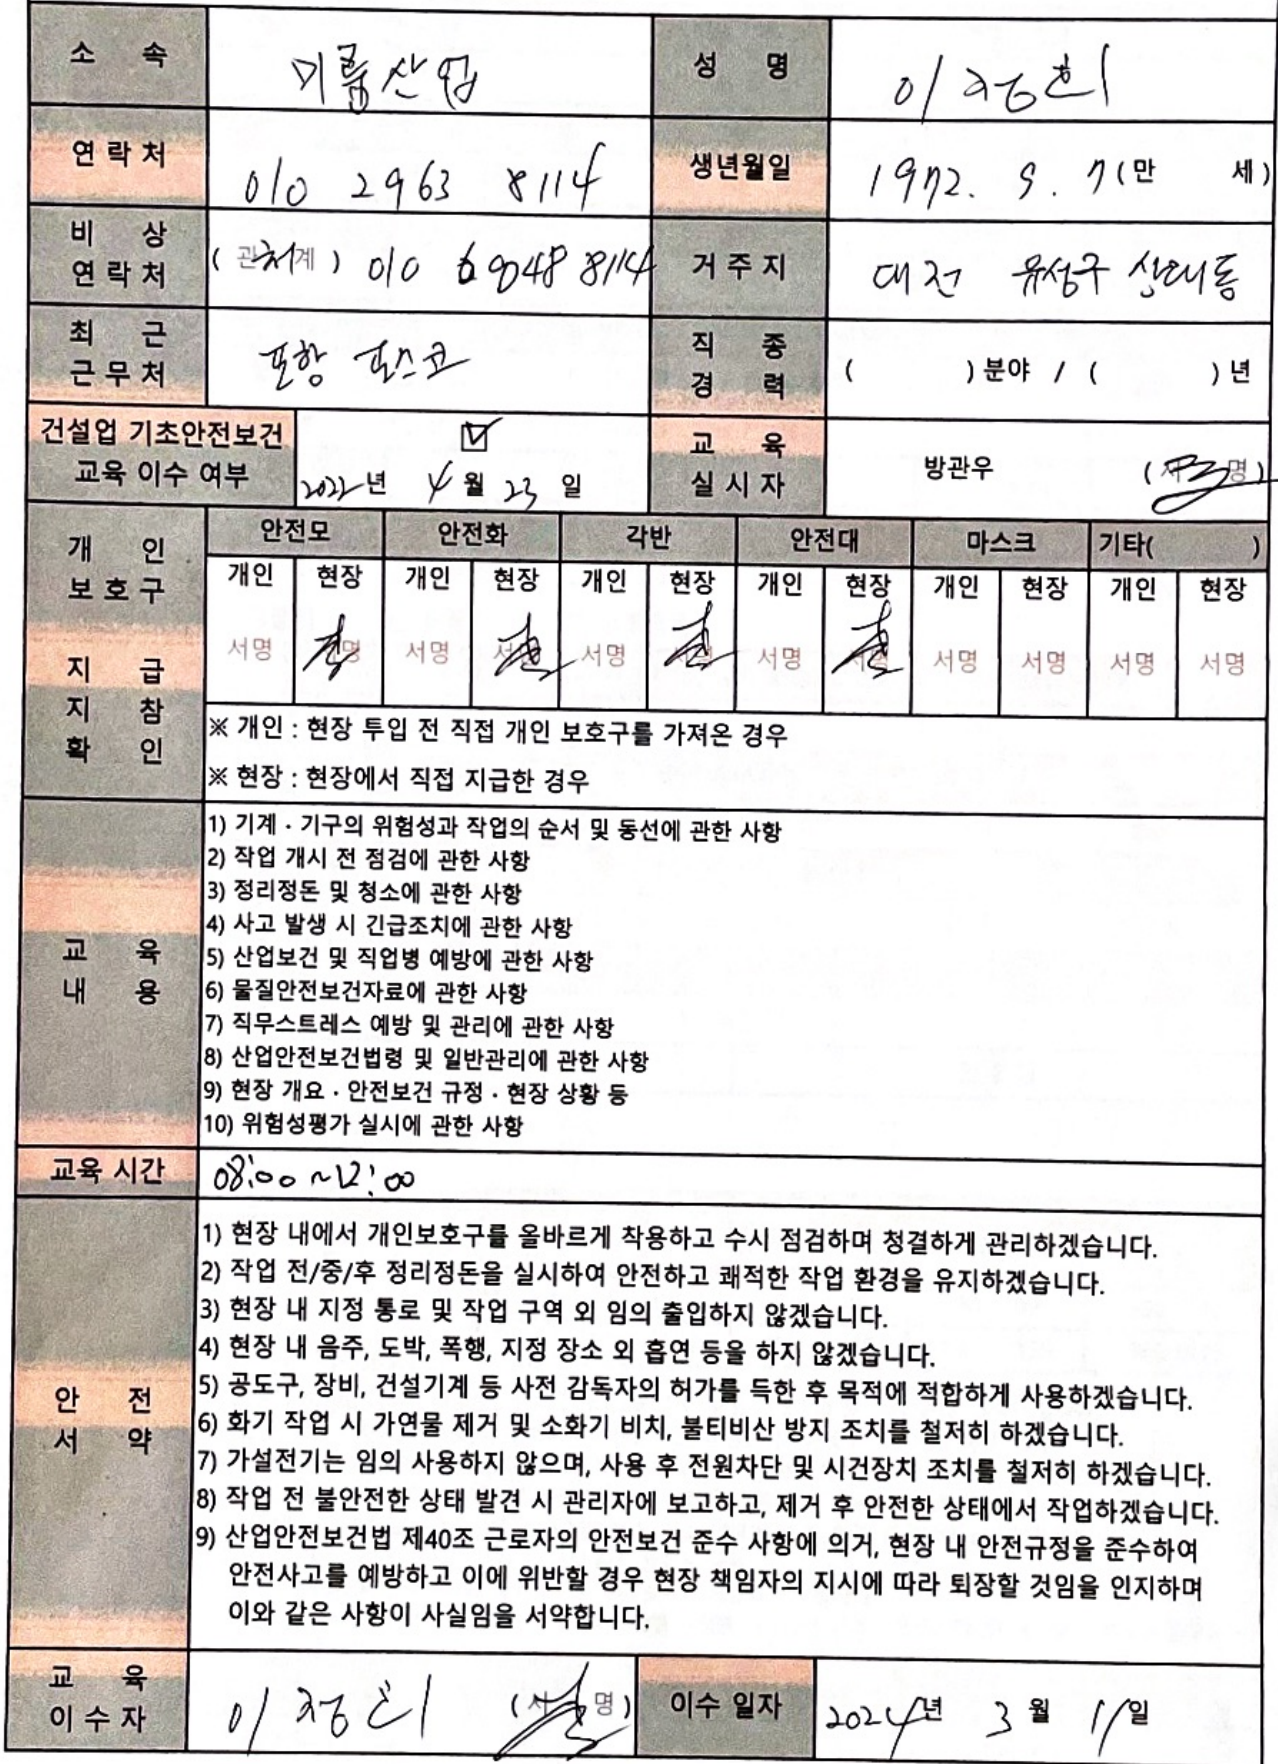 소 속 기륭산업 성 명 이정희
연락처 010 2963 8114 생년월일 1972. 9. 7 (만 세)
비 상
연락처 (관계) 처 010 6904 8 8114 거주지 대전 유성구 상대동
최 근
근무처 포항 포스코 직 종
경 력 ( )분야 / ( )년
건설업 기초안전보건
교육 이수 여부 ☑ 2022년 4월 23일 교 육
실시자 방관우 (서명)
개 인
보호구
지 급
지 참
확 인
안전모 안전화 각반 안전대 마스크 기타( )
개인 현장 개인 현장 개인 현장 개인 현장 개인 현장 개인 현장
서명 서명 서명 서명 서명 서명 서명 서명 서명 서명 서명 서명
※ 개인 : 현장 투입 전 직접 개인 보호구를 가져온 경우
※ 현장 : 현장에서 직접 지급한 경우
교 육
내 용
1) 기계 · 기구의 위험성과 작업의 순서 및 동선에 관한 사항
2) 작업 개시 전 점검에 관한 사항
3) 정리정돈 및 청소에 관한 사항
4) 사고 발생 시 긴급조치에 관한 사항
5) 산업보건 및 직업병 예방에 관한 사항
6) 물질안전보건자료에 관한 사항
7) 직무스트레스 예방 및 관리에 관한 사항
8) 산업안전보건법령 및 일반관리에 관한 사항
9) 현장 개요 · 안전보건 규정 · 현장 상황 등
10) 위험성평가 실시에 관한 사항
교육 시간 08:00 ~12:00
안 전
서 약
1) 현장 내에서 개인보호구를 올바르게 착용하고 수시 점검하며 청결하게 관리하겠습니다.
2) 작업 전/중/후 정리정돈을 실시하여 안전하고 쾌적한 작업 환경을 유지하겠습니다.
3) 현장 내 지정 통로 및 작업 구역 외 임의 출입하지 않겠습니다.
4) 현장 내 음주, 도박, 폭행, 지정 장소 외 흡연 등을 하지 않겠습니다.
5) 공도구, 장비, 건설기계 등 사전 감독자의 허가를 득한 후 목적에 적합하게 사용하겠습니다.
6) 화기 작업 시 가연물 제거 및 소화기 비치, 불티비산 방지 조치를 철저히 하겠습니다.
7) 가설전기는 임의 사용하지 않으며, 사용 후 전원차단 및 시건장치 조치를 철저히 하겠습니다.
8) 작업 전 불안전한 상태 발견 시 관리자에 보고하고, 제거 후 안전한 상태에서 작업하겠습니다.
9) 산업안전보건법 제40조 근로자의 안전보건 준수 사항에 의거, 현장 내 안전규정을 준수하여
안전사고를 예방하고 이에 위반할 경우 현장 책임자의 지시에 따라 퇴장할 것임을 인지하며
이와 같은 사항이 사실임을 서약합니다.
교 육
이수자 이정희 (서명) 이수 일자 2024년 3월 11일